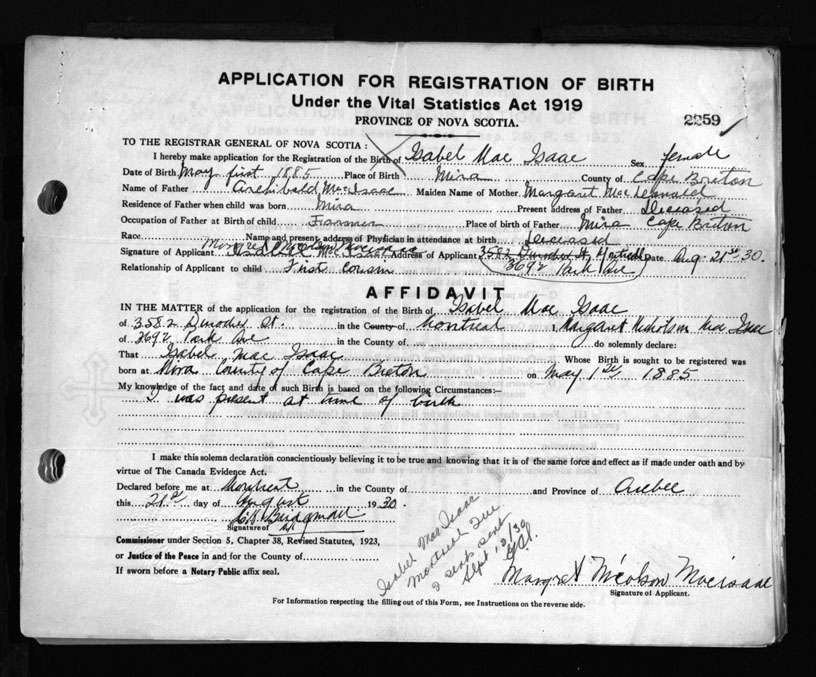 APPLICATION FOR REGISTRATION OF BIRTH
Under the Vital Statistics Act 1919
PROVINCE OF NOVA SCOTIA.
2259
TO THE REGISTRAR GENERAL OF NOVA SCOTIA:
I hereby make application for the Registration of the Birth of Isabel Mac Isaac Sex female
Date of Birth May first 1885 Place of Birth Mira County of Cape Breton
Name of Father Archibald MacIsaac Maiden Name of Mother Margaret MacDonald
Residence of Father when child was born Mira Present address of Father Deceased
Occupation of Father at Birth of child Farmer Place of birth of Father Mira Cape Breton
Race Name and present address of Physician in attendance at birth Deceased
Signature of Applicant Isabel Mac Isaac Address of Applicant 3582 St Montreal Date Aug. 21st 30.
3692 Park Ave
Relationship of Applicant to child First cousin
AFFIDAVIT
IN THE MATTER of the application for the registration of the Birth of Isabel Mac Isaac
of 3582 St. in the County of Montreal I, Margaret Nicholson Mac Isaac
of 3692 Park Ave in the County of do solemnly declare:
That Isabel Mac Isaac Whose Birth is sought to be registered was
born at Mira County of Cape Breton on May 1st 1885
My knowledge of the fact and date of such Birth is based on the following Circumstances:—
I was present at time of birth
I make this solemn declaration conscientiously believing it to be true and knowing that it is of the same force and effect as if made under oath and by
virtue of The Canada Evidence Act.
Declared before me at Montreal in the County of and Province of Quebec
this 21st day of August 1930.
Signature of
Commissioner under Section 5, Chapter 38, Revised Statutes, 1923,
or Justice of the Peace in and for the County of
If sworn before a Notary Public affix seal.
Isabel MacIsaac
Montreal Que
2 sent
Sept 12/30
Margret Nicolson MacIsaac
Signature of Applicant.
For Information respecting the filling out of this Form, see Instructions on the reverse side.